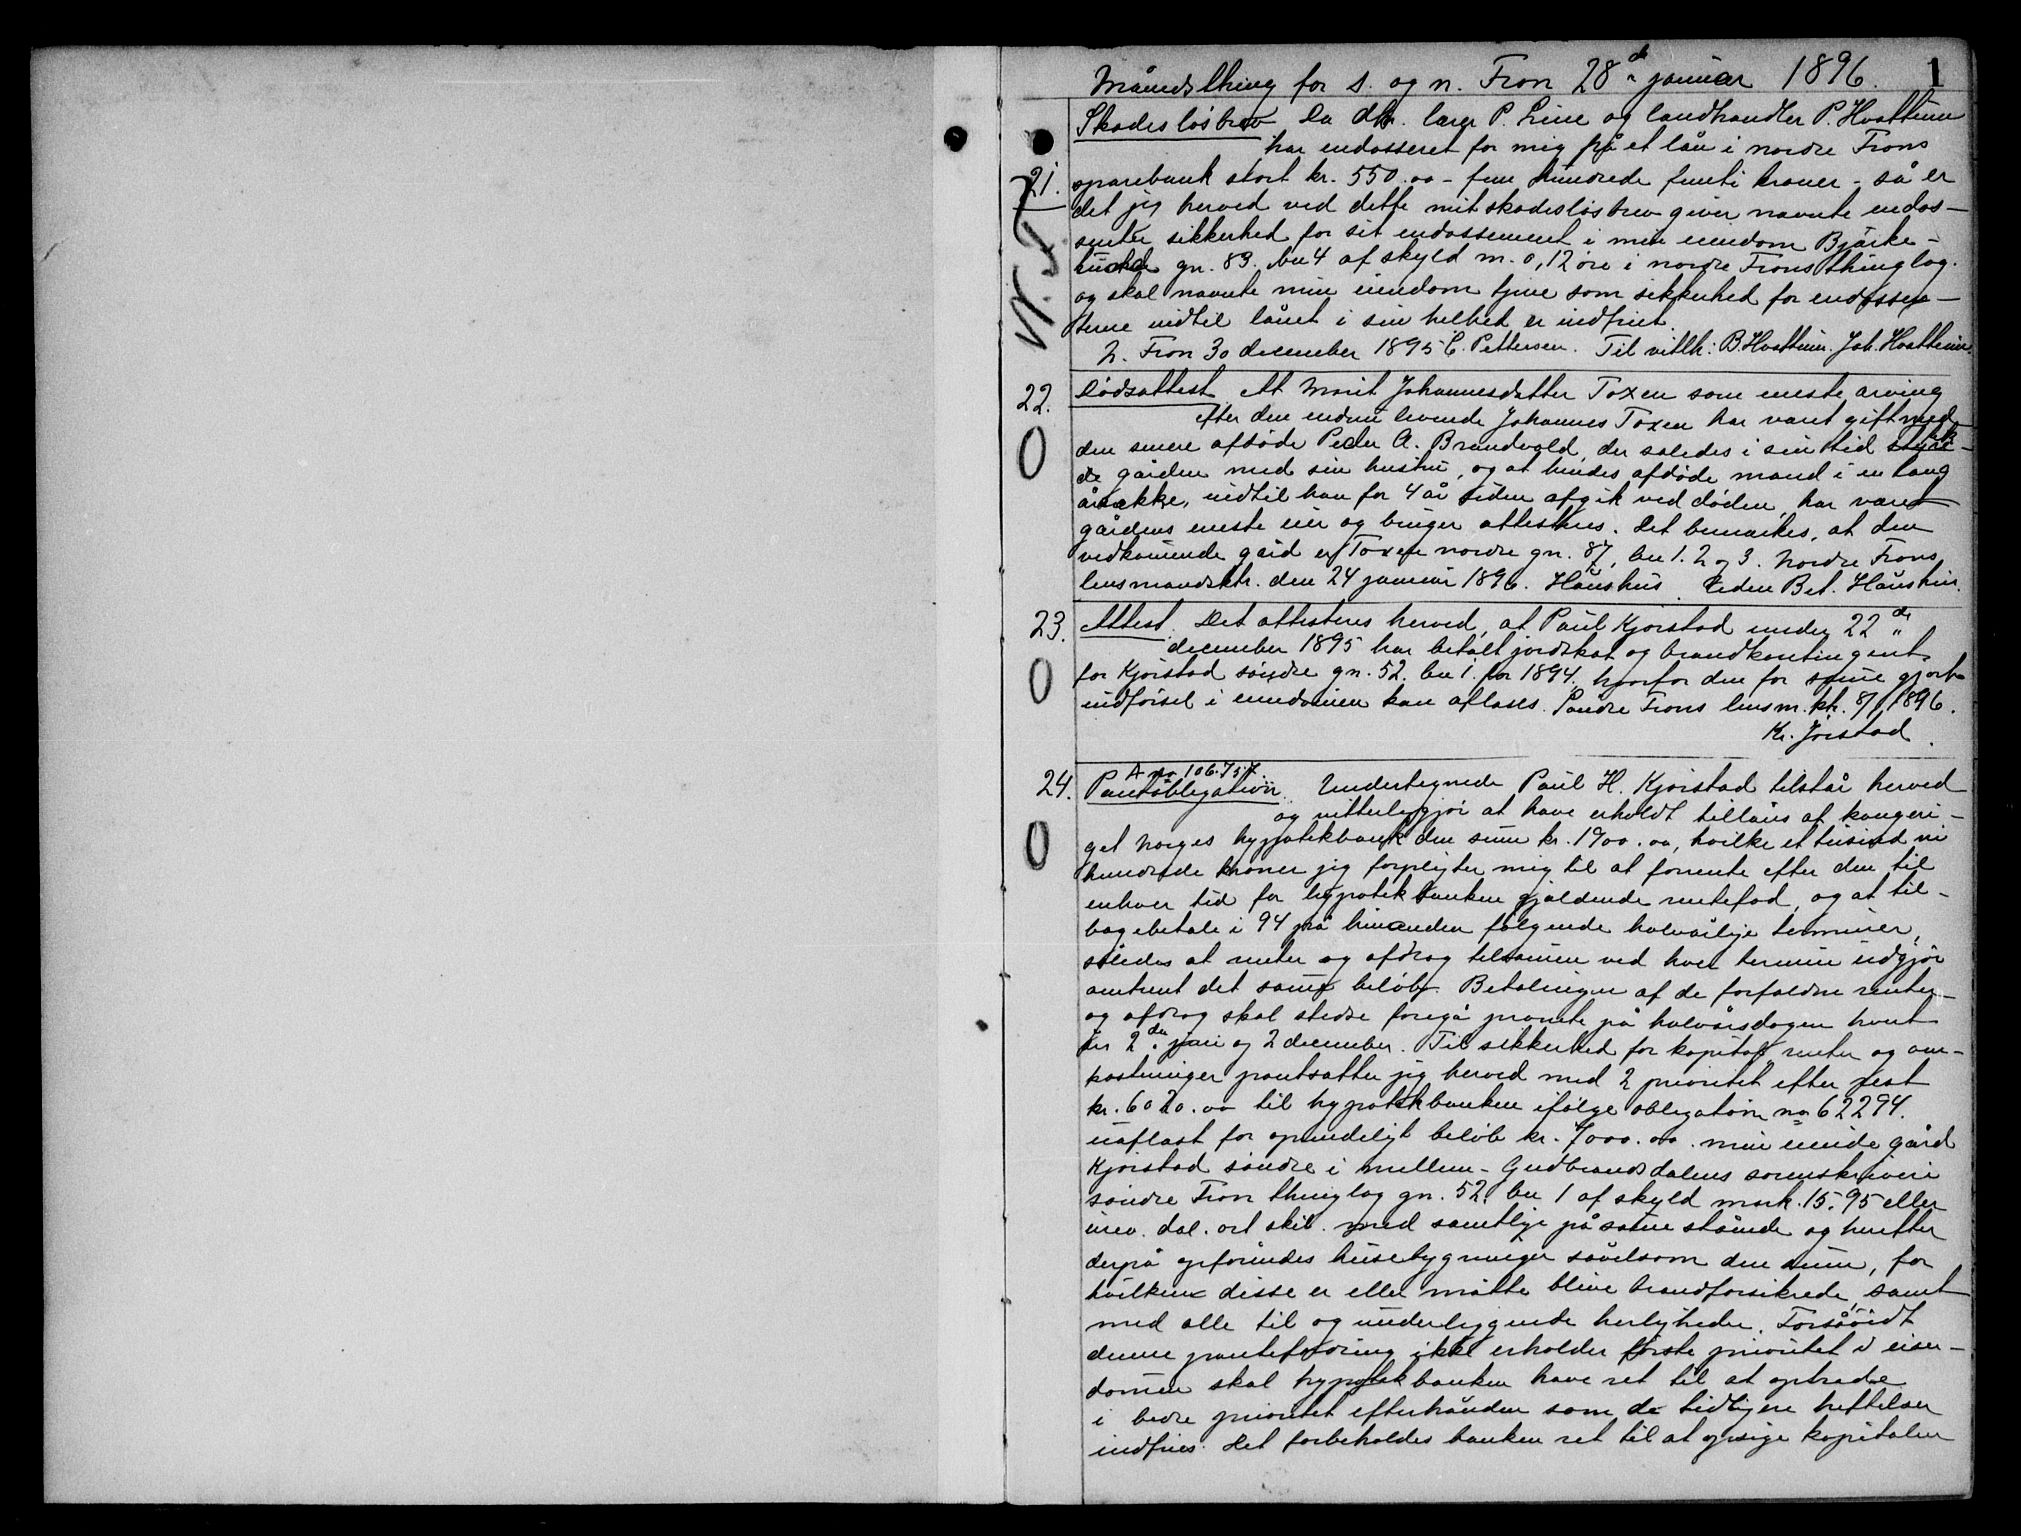 Månedsthing for s. og n. Fron 28de januar 1896. 1
Skadesløsbrev. Da dhr. P. Line og landhandler P. Hvattum
har endosseret for mig på et lån i nordre Frons
21. sparebank stort kr. 550.00 - fem hundrede femti kroner - så er
det jeg herved ved dette mit skadesløsbrev giver nævnte endos-
senter sikkerhed for sit endossement i min eiendom Bjørke-
gn. 83. bn 4 af skyld m. 0,12 øre i nordre Frons thinglag.
og skal nævnte min eiendom tjene som sikkerhed for endossen-
terne indtil lånet i sin helhed er indfriet.
N. Fron 30 december 1895 C. Pettersen. Til vitth: B. Hvattum. Joh. Hvattum.
22. Dødsattest. At Marit Johannesdatter Toxen som eneste arving
efter den endnu levende Johannes Toxen har været gift med
den senere afdøde Peder A. Brandvold, der således i sin tid
de gården med sin hustru, og at hendes afdøde mand i en lang
årrække, indtil han for 4 år siden afgik ved døden, har været
gårdens eneste eier og bruger attesteres. Det bemærkes, at den
vedkommende gård er Toxen nordre gn. 87, bn 1. 2 og 3. Nordre Frons
lensmandsktr. den 24 januar 1896. Haushus. Uden Bet. Haushus.
23. Attest. Det attesteres herved, at Paul Kjørstad under 22de
december 1895 har betalt jordskat og brandkontingent
for Kjørstad søndre gn. 52. bn 1. for 1894. hvorfor den for samme gjorte
indførsel i eiendommen kan aflæses. Søndre Frons lensm.ktr. 8/1 1896.
Kr. Jørstad.
24. A no 106.757.
Pantobligation. Undertegnede Paul H. Kjørstad tilstår herved
og vitterliggjør at have erholdt tillåns af kongeri-
get Norges hypotekbank den sum kr. 1900.00, hvilke et tusind ni
hundrede kroner jeg forpligter mig til at forrente efter den til
enhver tid for hypotekbanken gjældende rentefod, og at til-
bagebetale i 94 på hinanden følgende halvårlige terminer,
således at renter og afdrag tilsammen ved hver termin udgjør
omtrent det samme beløb. Betalingen af de forfaldne renter
og afdrag skal stedse foregå promte på halvårsdagen hvert
år 2den juni og 2 december. Til sikkerhed for kapital, renter og om-
kostninger pantsætter jeg herved med 2 prioritet efter rest
kr. 6020.00 til hypotekbanken ifølge obligation no 62294.
uaflæst for oprindeligt beløb kr. 7000.00. min eiende gård
Kjørstad søndre i mellem-Gudbrandsdalens sorenskriveri
søndre Fron thinglag gn. 52. bn 1 af skyld mark. 15.95 eller
urev. dal. ort skil. med samtlige på samme stående og herefter
derpå opførendes husebygninger såvelsom den sum, for
hvilken disse er eller måtte blive brandforsikrede, samt
med alle til og underliggende herligheder. Forsåvidt
denne pantefordring ikke erholder første prioritet i eien-
dommen skal hypotekbanken have ret til at optræde
i bedre prioritet efterhånden som de tidligere heftelser
indfries. Det forbeholdes banken ret til at opsige kapitalen